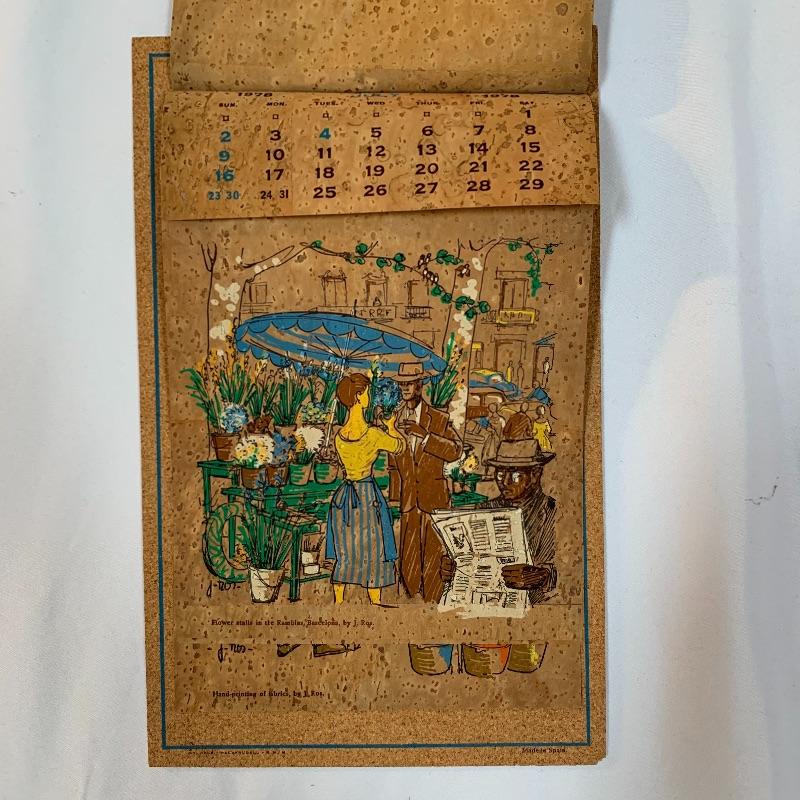 1978 JULY 1978
SUN. MON. TUES. WED. THUR. FRI. SAT.
1
2 3 4 5 6 7 8
9 10 11 12 13 14 15
16 17 18 19 20 21 22
23 30 24 31 25 26 27 28 29
J-ROS-
Flower stalls in the Ramblas, Barcelona, by J. Ros.
-J-ROS-
Hand-printing of fabrics, by J. Ros.
Made in Spain